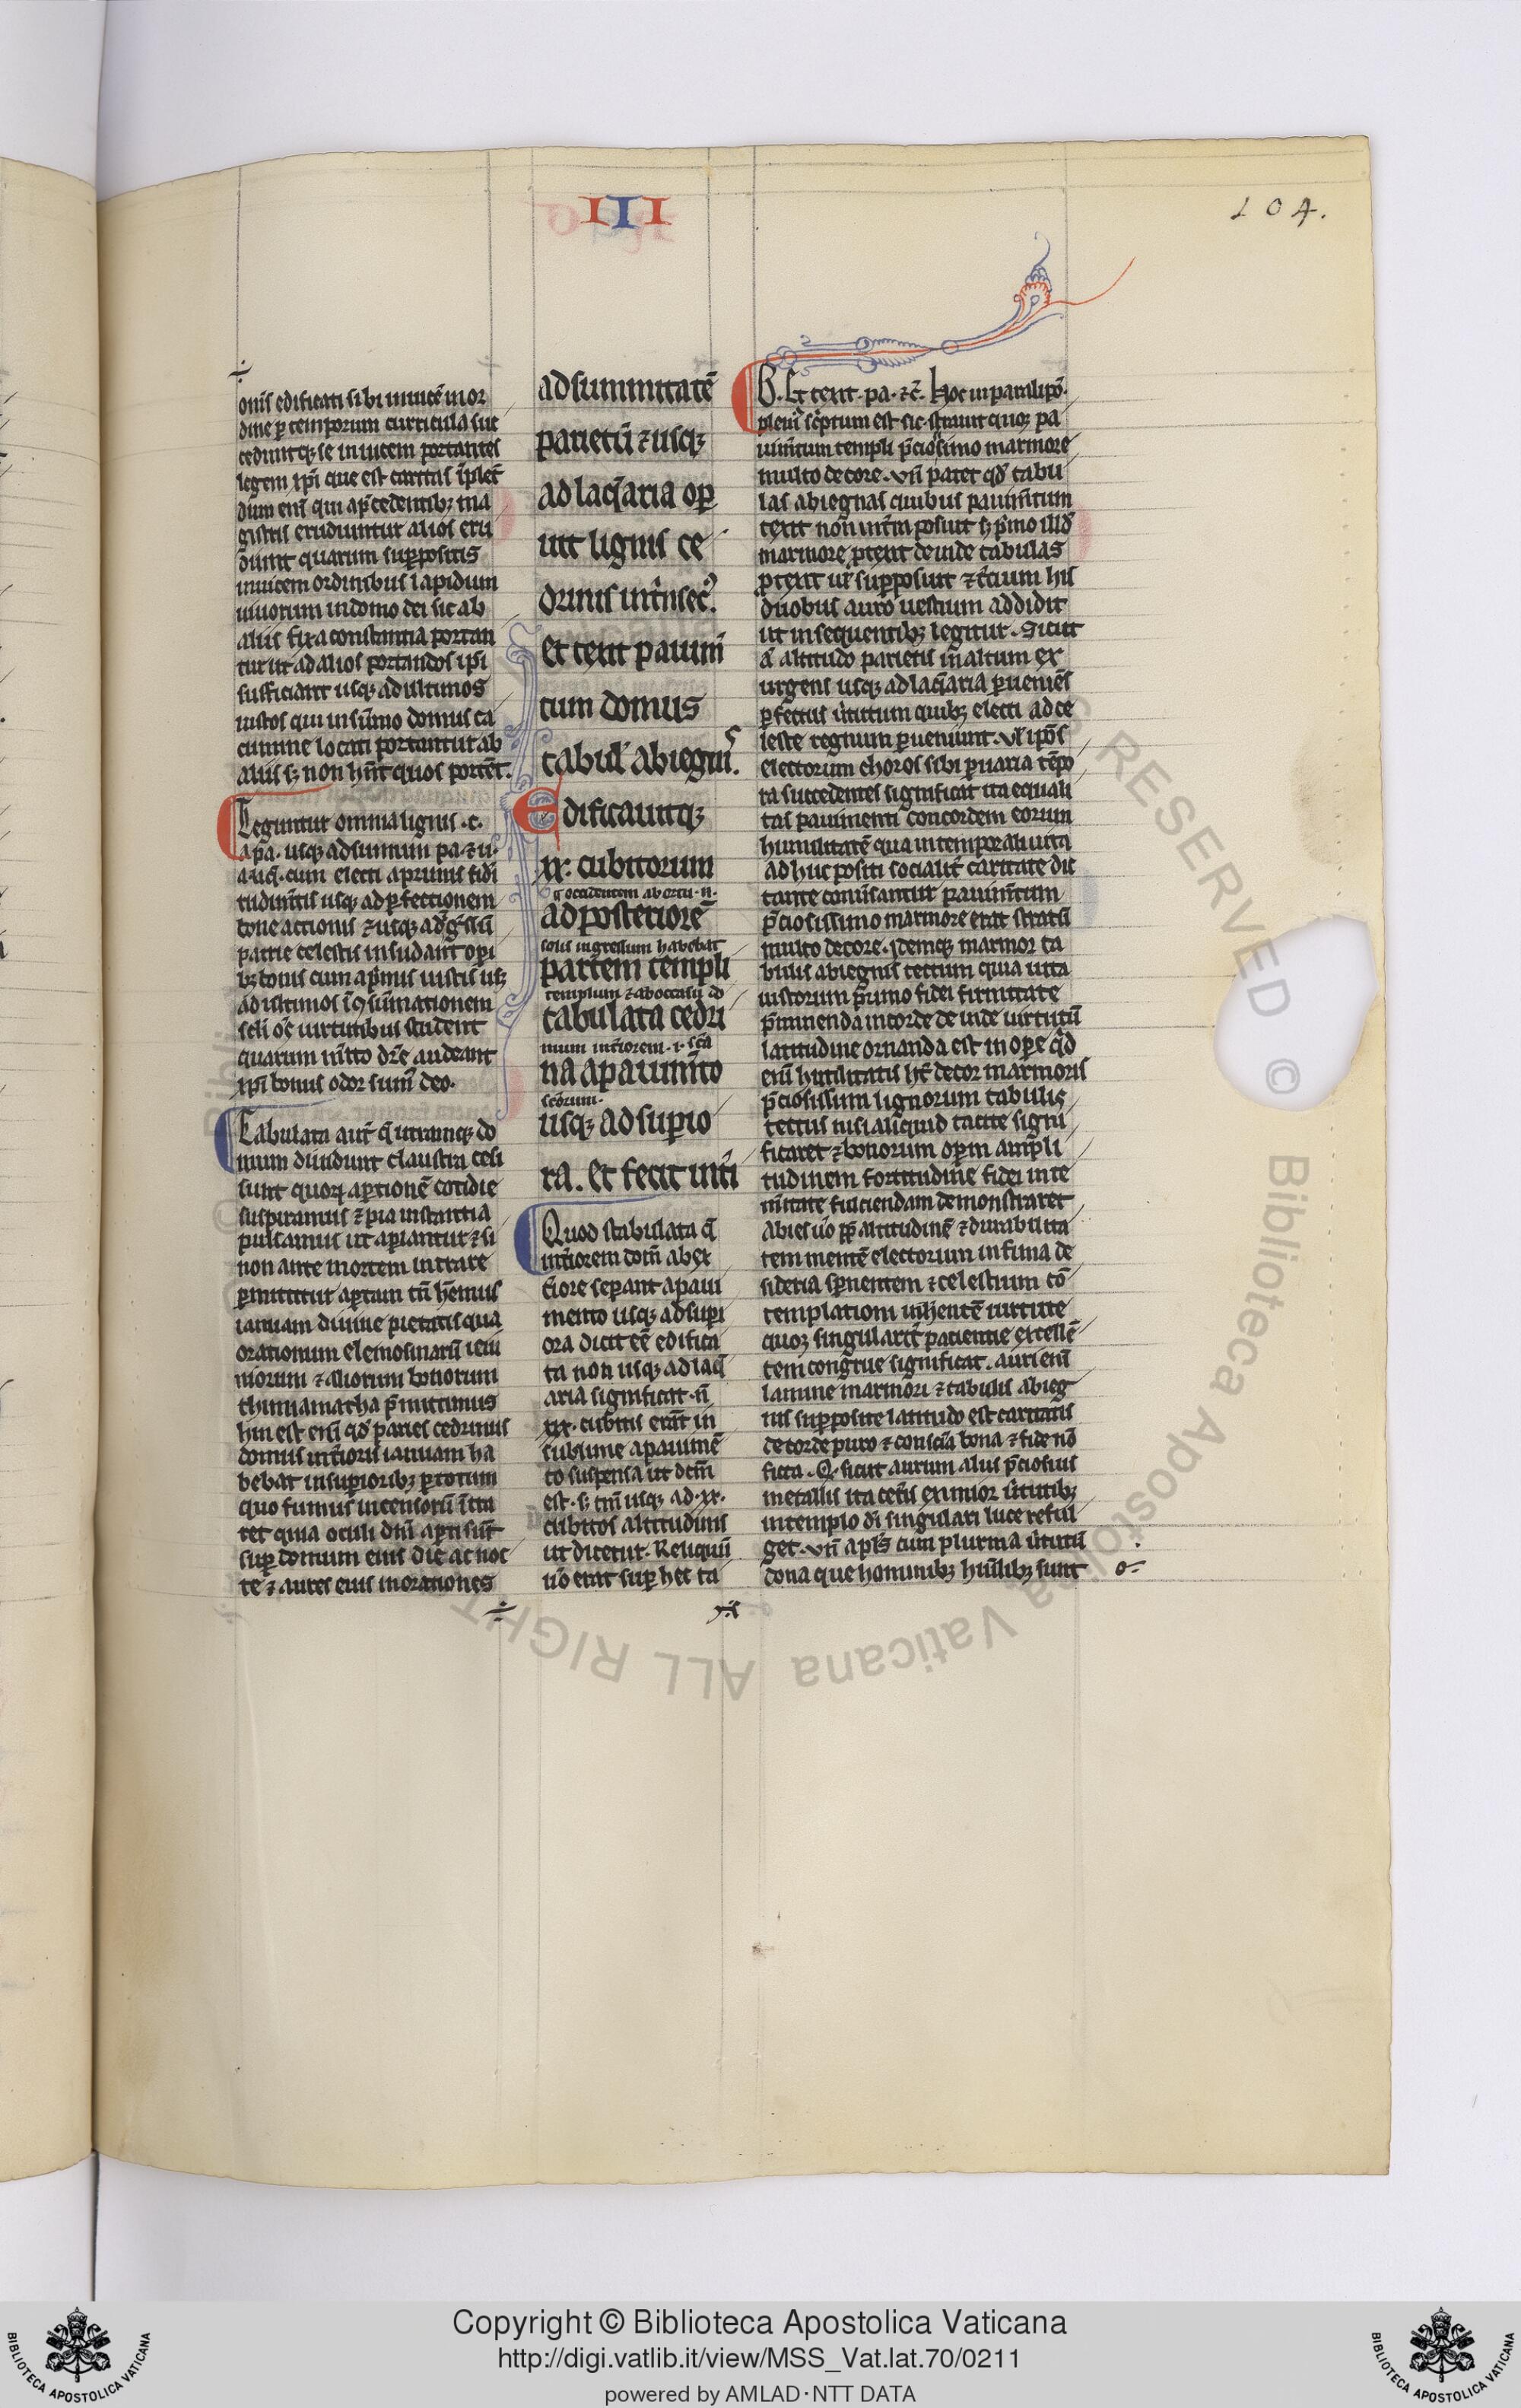 III
104.
onis edificati sibi inuicē in or
dine ꝑ temporum curricula suc
ceduntqȝ se inuicem portantes
legem xp̄i que est caritas īplēt
dum eni᷑ qui a p̄cedentibȝ ma
gistris erudiuntur alios eru
diunt quarum suꝑpositis
inuicem ordinibus lapidum
uiuorum in domo dei sic ab
aliis fixa constantia portan
tur ut ad alios portandos ip̄i
sufficiant usqȝ ad ultimos
iustos qui in sūmo domus ca
cumine locati portantur ab
aliis sȝ non hn̄t quos portēt.
Teguntur omnia lignis .c.
a pa. usqȝ ad summum pa. ⁊ u.
cum electi a primis fidi
tudin̄tis usqȝ ad ꝑfectionem
bone actionis ⁊ usqȝ ad īg̃ssū
patrie celestis insudant oꝑi
bȝ bonis cum a p̄mis iustis usqȝ
ad ultimos ī ꝯsūmationem
sc̄li oēs uirtutibus student
quarum m̄ito dr̄e audeant
xp̄i bonus odor sum᷑ deo.
Tabulata aut᷑ q̄ utramqȝ do
mum diuidunt claustra celi
sunt quorū aꝑtionē cotidie
suspiramus ⁊ pia instantia
pulsamus ut aꝑiantur ⁊ si
non ante mortem intrare
ꝑmittitur aꝑtam tn̄ hēmus
ianuam diuine pietatis qua
orationum elemosinarū ieiu
niorum ⁊ aliorum bonorum
thimiamatha p̄mittimus
hin est eni᷑ qd̄ paries cedrinus
domus int̄ioris ianuam ha
bebat in suꝑioribȝ ꝑ totum
quo fumus incensorū īt̃a
ret quia oculi dn̄i aꝑti sūt
suꝑ domum eius die ac noc
te ⁊ aures eius in orationes
ad summitatē
parietū ⁊ usqȝ
ad laq̄aria oꝑ
uit lignis ce
drinis int̄nsecꝰ.
Et texit pauim̄
tum domus
tabul᷑ abiegnis.
Edificauitqȝ
xx. cubitorum
q occidentem aborta .n.
ad posteriorē
solis ingressum habebat
partem templi
templum ⁊ ab occasu do
tabulata cedri
mum int̄iorem .i. sc̄a
na a pauim̄to
sc̄orum.
usqȝ ad suꝑio
ra. Et fecit int̄i
Quod stabulata q̄
int̄iorem dom̄ ab ex
t̄iore seꝑant a paui
mento usqȝ ad suꝑi
ora dicit eē edifica
ta non usqȝ ad laq̄
aria significat .n̄
xxx. cubitis erāt in
sublime a pauimē
to suspensa ut dc̄m
est. sȝ tm̄ usqȝ ad .xx.
cubitos altitudinis
ut dicetur. Reliquū
u̇o erat suꝑ hec ta
B. Et texit. pa. ⁊c̄. Hoc in paralipō.
pleni᷑ sc̄ptum est sic. strauit quoqȝ pa
uim̄tum templi p̄ciosissimo marmore
multo decore. Vn̄ patet qd̄ tabu
las abiegnas quibus pauim̄tum
texit non int̄im posuit sȝ p̄mo illd̄
marmore ꝓtexit deinde tabulas
suꝑposuit ⁊ t̄cium his
duobus auro uestium addidit
ut in sequentibȝ legitur. Sicut
altitudo parietis in altum ex
urgens usqȝ ad laq̄aria ꝑueniēs
ꝑfectus u̇tutum quibȝ electi ad ce
leste regnum ꝑueniunt. Vl᷑ ip̄os
electorum choros sibi ꝑ uaria tēpo
ra succedentes significat ita equali
tas pauimenti concordem eorum
humilitatē qua in temporali uita
adhuc positi socialit᷑ caritate dic
tante conuersantur pauim̄tum
p̄ciosissimo marmore erat stratū
multo decore. Idemqȝ marmor ta
bulis abiegnis tectum quia uita
iustorum primo fidei firmitate
p̄munienda in corde deinde uirtutū
latitudine ornanda est in oꝑe qd̄
enī humilitatis hr̄ decor marmoris
p̄ciosissum lignorum tabulis
tectus nisi aliquid tacite signi
ficaret ⁊ bonorum oꝑm ampli
tudinem fortitudine fidei inte
m̄itate fulciendam demonstraret
abies u̇o ꝓp̄ altitudinē ⁊ durabilita
tem mentē electorum infima de
sideria sꝑnentem ⁊ celestium cō
templationi inherentē uirtute
quoqȝ singularit᷑ patientie excellē
tem congrue significat. auri eni᷑
lamine marmori ⁊ tabulis abieg
nis suꝑposite latitudo est caritatis
de corde puro ⁊ consciā bona ⁊ fide nō
ficta. Q. sicut aurum aliis p̄ciosius
metallis ita cet̄is eximior u̇tutibȝ
in templo di᷑ singulari luce reful
get. Vn̄ apl̄s cum plurima u̇tutū
dona que hominibȝ humilibȝ sunt
Copyright © Biblioteca Apostolica Vaticana
http://digi.vatlib.it/view/MSS_Vat.lat.70/0211
powered by AMLAD·NTT DATA
BIBLIOTECA APOSTOLICA VATICANA
BIBLIOTECA APOSTOLICA VATICANA
© Biblioteca Apostolica Vaticana ALL RIGHTS RESERVED